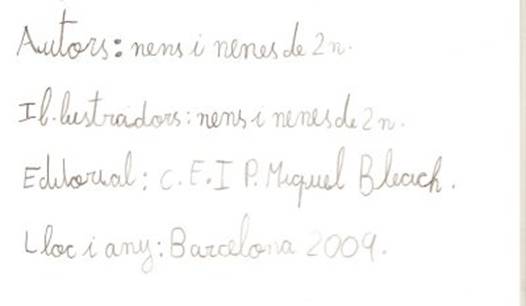 Autors: nens i nenes de 2n.
Il·lustradors: nens i nenes de 2n.
Editorial: C.E.I P. Miquel Bleach.
Lloc i any: Barcelona 2009.